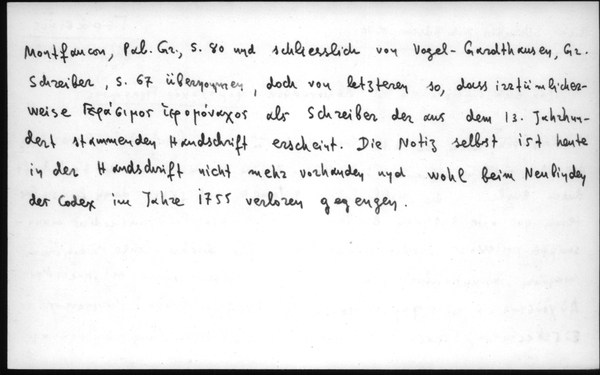 Montfaucon, Pal. Gr., S. 80 und schliesslich von Vogel-Gardthausen, Gr.
Schreiber, S. 67 übernommen, doch von letzteren so, dass irrtümlicher-
weise Γεράσιμος ἱερομόναχος als Schreiber der aus dem 13. Jahrhun-
dert stammenden Handschrift erscheint. Die Notiz selbst ist heute
in der Handschrift nicht mehr vorhanden und wohl beim Neubinden
des Codex im Jahre 1755 verloren gegangen.